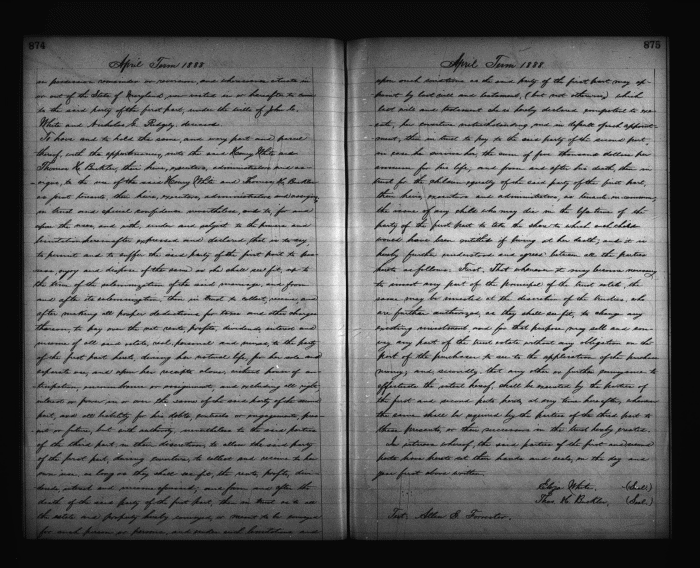 874
April Term 1888
in possession remainder or reversion, and wheresoever situate in
or out of the State of Maryland, now vested in or hereafter to come
to the said party of the first part, under the wills of John C.
White and Nicholas G. Ridgely deceased.
To have and to hold the same, and every part and parcel
thereof, with the appurtenances, unto the said Henry White and
Thomas H. Buckler, their heirs, executors, administrators and as-
signs, to the use of the said Henry White and Thomas H. Buckler
as joint tenants, their heirs, executors, administrators and assigns,
in trust and special confidence nevertheless, and to, for and
upon the uses, and with, under and subject to the powers and
limitations hereinafter expressed and declared, that is to say,
to permit and to suffer the said party of the first part to pos-
sess, enjoy and dispose of the same as she shall see fit, up to
the time of the solemnization of the said marriage, and from
and after its solemnization, then in trust to collect, receive, and
after making all proper deductions for taxes and other charges
thereon, to pay over the net rents, profits, dividends, interest and
income of all said estate, real, personal and mixed, to the party
of the first part hereto, during her natural life, for her sole and
separate use, and upon her receipts alone, without power of an-
ticipation, encumbrance or assignment, and excluding all right,
interest or power in or over the same of the said party of the second
part, and all liability for his debts, contracts or engagements, pres-
ent or future, but with authority nevertheless to the said parties
of the third part, in their discretion, to allow the said party
of the first part, during coverture, to collect and receive to her
own use, as long as they shall see fit, the rents, profits, divi-
dends, interest and income aforesaid, and from and after the
death of the said party of the first part, then in trust as to all
the estate and property hereby conveyed, or meant to be conveyed
for such person or persons, and under such limitations and
875
April Term 1888
upon such conditions as the said party of the first part may ap-
point by last will and testament, (but not otherwise) which
last will and testament she is hereby declared competent to exe-
cute, her coverture notwithstanding, and in default of such appoint-
ment, then in trust to pay to the said party of the second part,
in case he survive her, the sum of five thousand dollars per
annum for his life, and from and after his death, then in
trust for the children equally of the said party of the first part,
their heirs, executors and administrators, as tenants in common,
the issue of any child who may die in the lifetime of the
party of the first part to take the share to which such child
would have been entitled if living at her death; and it is
hereby further understood and agreed between all the parties
hereto as follows: First. That whenever it may become necessary
to invest any part of the principal of the trust estate, the
same may be invested at the discretion of the trustees, who
are further authorized, as they shall see fit, to change any
existing investment, and for that purpose, may sell and con-
vey any part of the trust estate without any obligation on the
part of the purchaser to see to the application of the purchase
money; and secondly, that any other or further assurance to
effectuate the intent hereof, shall be executed by the parties of
the first and second parts hereto, at any time hereafter, whenever
the same shall be required by the parties of the third part to
these presents, or their successors in the trust hereby created.
In witness whereof, the said parties of the first and second
parts have hereto set their hands and seals, on the day and
year first above written.
Eliza White. (Seal)
Thos H. Buckler. (Seal)
Test. Allen E. Forrester.